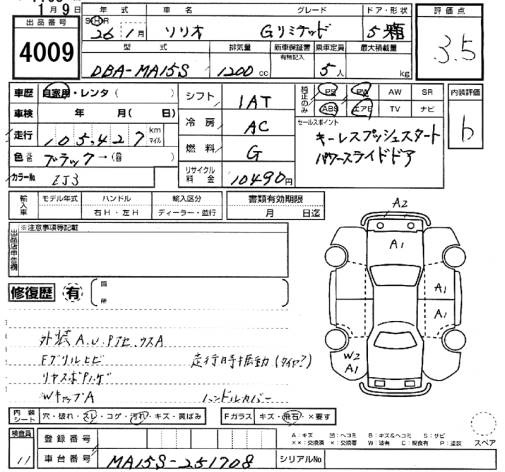 1月9日
出品番号
4009
年式 車名 グレード ドア・形状
SHR 26年1月 ソリオ Gリミテッド 5
評価点
3.5
型式 排気量 新車保証書 有無記入 乗車定員 最大積載量
DBA-MA15S 1200cc 5人 kg
車歴 自家用・レンタ( )
車検 年 月( )
走行 105,427 km マイル
色 No. ブラック→(黒)
カラーNo. ZJ3
シフト 1AT
冷房 AC
燃料 G
リサイクル料金 10490円
純正のみ PS PW AW SR
ABS エアB TV ナビ
セールスポイント
キーレスプッシュスタート
パワースライドドア
内装評価
b
輸入車 モデル年式 ハンドル 右H・左H 輸入区分 ディーラー・並行
書類有効期限
月 日迄
※注意事項等記載
修復歴 有
外装A.U.Pアビックス A
Fグリルヒビ
走行時振動(タイヤ?)
WキャップA
ハンドルカバー
A2
A1
A1
A1
A1
W2
A1
内装シート 穴・破れ・スレ・コゲ・汚れ・キズ・黄ばみ
Fガラス キズ・飛石・×要す
A:キズ U:ヘコミ B:キズ&ヘコミ S:サビ
××:交換済 ×:交換要 W:波有 C:腐食有 P:塗装
スペア
検査員
11
登録番号
車台番号 MA15S-251708
シリアルNo.